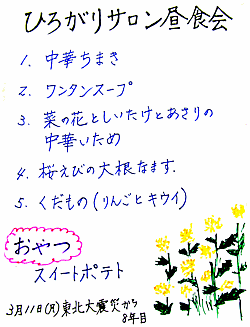 ひろがりサロン昼食会
1. 中華ちまき
2. ワンタンスープ
3. 菜の花としいたけとあさりの
中華いため
4. 桜えびの大根なます.
5. くだもの(りんごとキウイ)
おやつ
スイートポテト
3月11日(月)東北大震災から
8年目